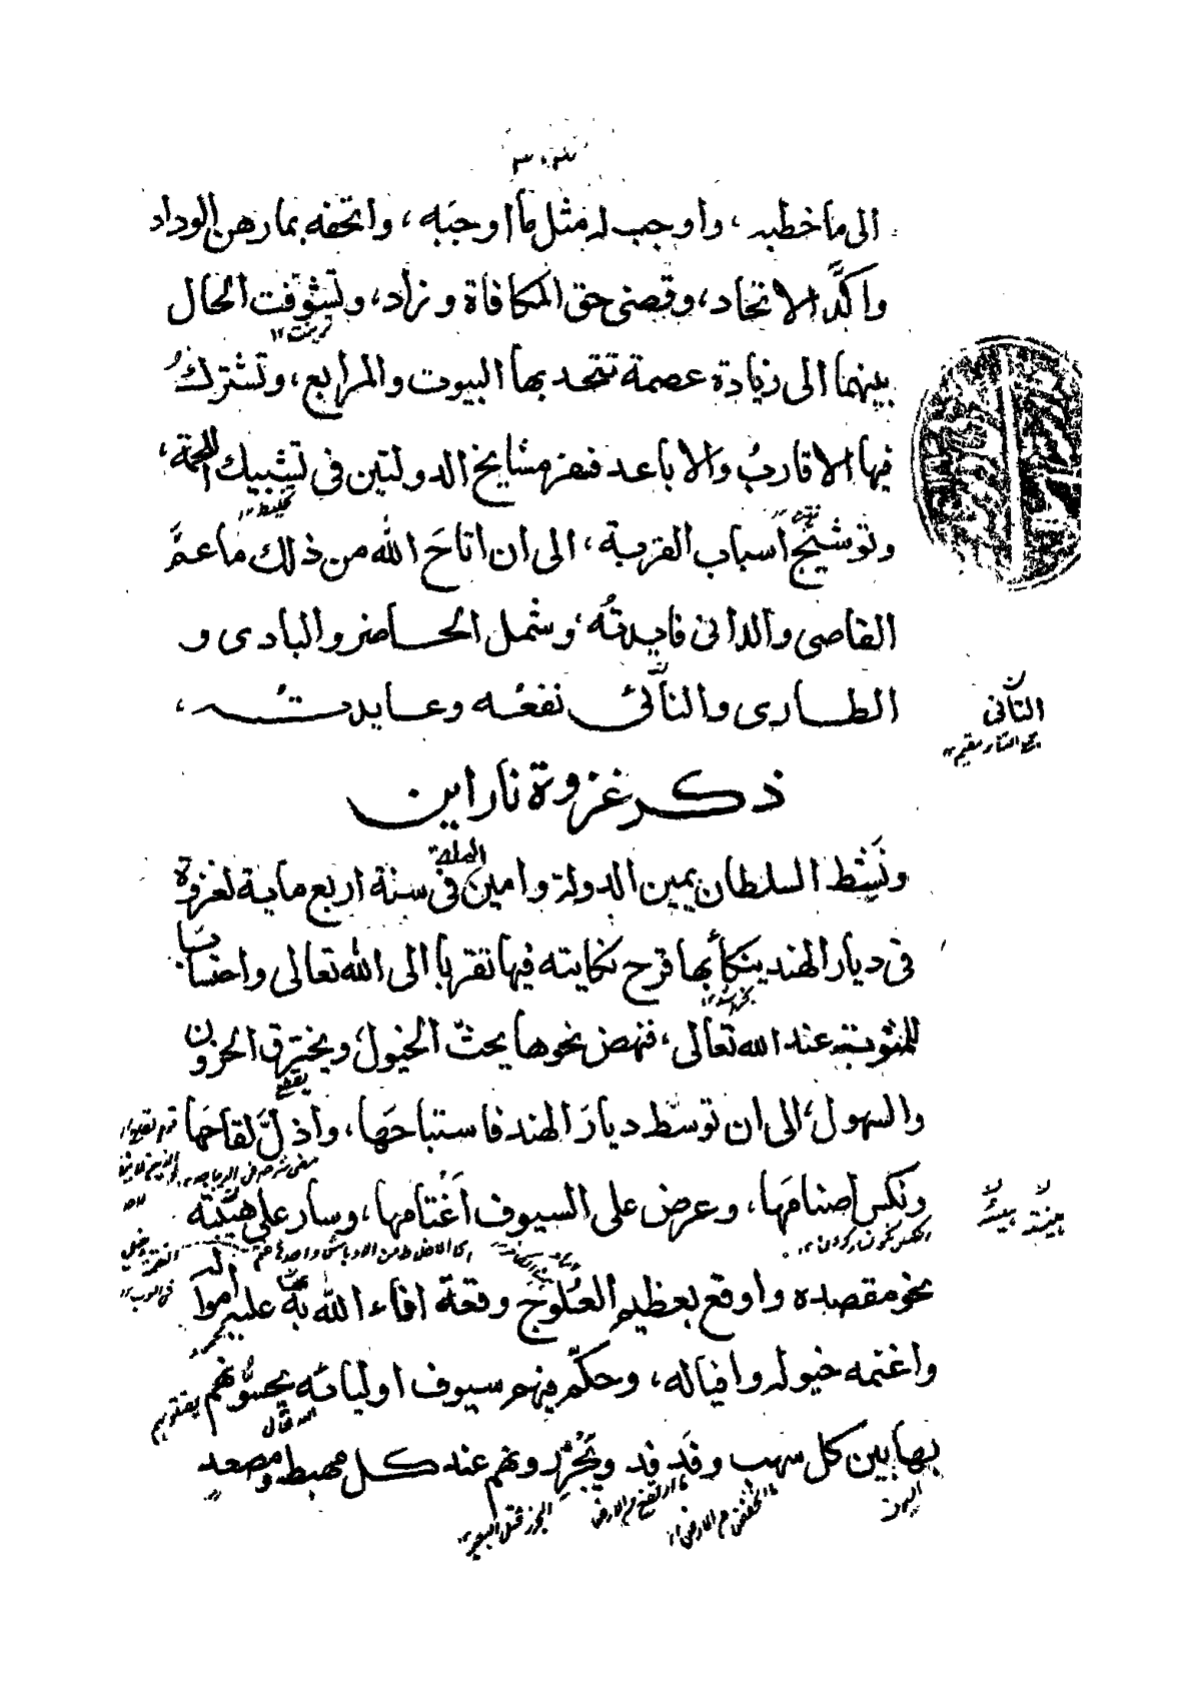 الى ما خطبه، واوجب له مثل ما اوجبه، واتحفه بما رهن الوداد
واكَّد الاتحاد، وقضى حق المكافاة وزاد، وتشوفت الحال
تزينت ١٢
بينهما الى زيادة عصمة تتحد بها البيوت والمرابع، وتشتركُ
فيها الاقاربُ والاباعد فسفر مشايخ الدولتين فى تشبيك اللحمة،
وتوشيج اسباب القربة، الى ان اتاحَ الله من ذلك ما عمَّ
القاصى والدانى فايدتُه، وشمل الحاضر والبادى و
الطارى والنائى نفعُه وعايدتُه،
التانى
ذكر غزوة ناراين
ونَشِط السلطان يمين الدولة وامين الملة فى سنة اربع ماية لغزوة
فى ديار الهند ينكأ بها قرح نكايته فيها تقربا الى الله تعالى واحتسابا
للمثوبة عند الله تعالى، فنهض نحوها يحثّ الخيول، ويخترق الحزون
يقطع
والسهول، الى ان توسّط ديارَ الهند فاستباحَها، واذلَّ لقاحَها
ونكس اصنامَها، وعرض على السيوف اَغْتامها، وسار على هيّنته
نحو مقصده واوقع بعظيم العُلوج وقعة افاء الله بها عليه اموالهم
واغنمه خيوله وافياله، وحكّم فيهم سيوف اوليائه يحسُّونهم
يقتلونهم
بها بين كل سهب وفَدفد ويَجْزرونهم عند كل مهبط ومصعد